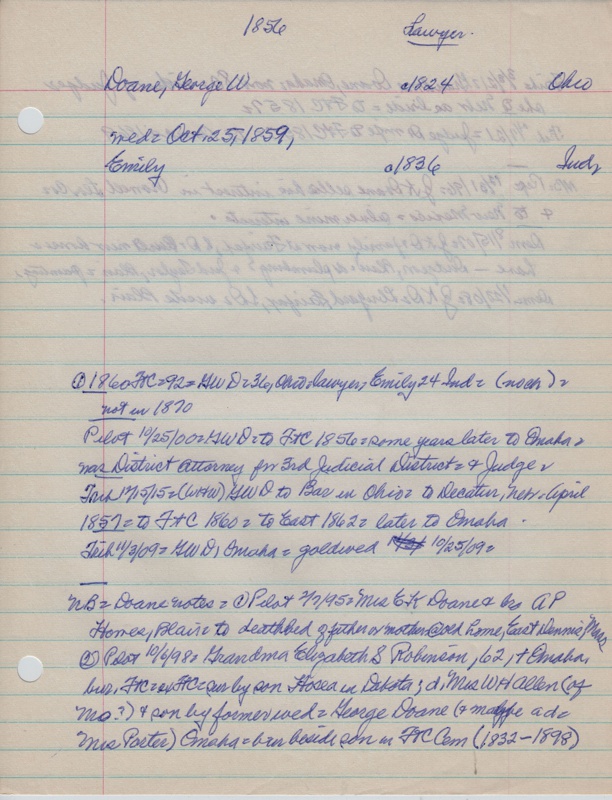 1856 Lawyer.
Doane, George W. c1824 Ohio
wed = Oct. 25, 1859,
Emily c1836 Ind.
① 1860 FtC = 92 = GWD = 36, Ohio = lawyer, Emily 24 Ind = (no ch) =
not in 1870
Pilot 10/25/00 = GWD = to FtC 1856 = some years later to Omaha =
was District Attorney for 3rd Judicial District = & Judge
GWD to Bar in Ohio = to Decatur, Nebr. April
1857 = to FtC 1860 = to East 1862 = later to Omaha.
11/3/09 = GWD, Omaha = goldwed 10/25/09 =
NB = Doane notes = ① Pilot 2/7/95 = Mrs EK Doane & bro AP
Homes, Blair = to deathbed of father or mother @ old home, East Dennis, Mass
② Pilot 10/6/98 = Grandma Elizabeth S Robinson, 62, + Omaha,
bur, FtC = FtC = sur by son Hosea in Dakota; d, Mrs WH Allen (of
Mo.?) & son by former wed = George Doane (& maybe ad =
Mrs Porter) Omaha = bur beside son in FtC Cem (1832-1898)